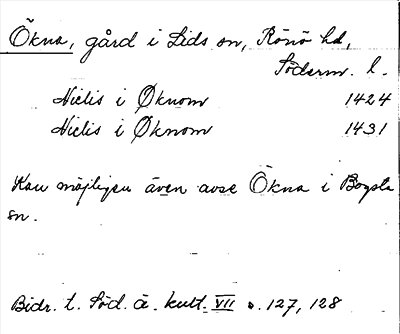 Ökna, gård i Lids sn, Rönö hd,
Söderm. l.
Niclis i Øknom 1424
Niclis i Øknom 1431
Kan möjligen även avse Ökna i Bogsta
sn.
Bidr. t. Söd. ä. kult. VII s. 127, 128